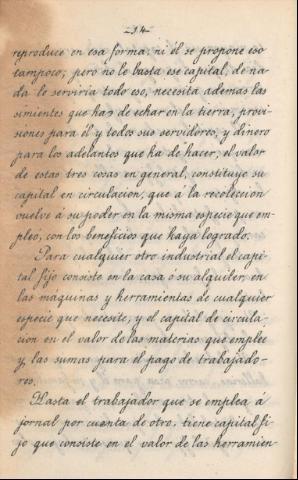 -14-
reproduce en esa forma; ni él se propone eso
tampoco; pero no le basta ese capital, de na-
da le serviría todo eso, necesita además las
simientes que ha de echar en la tierra, provi-
siones para él y todos sus servidores, y dinero
para los adelantos que ha de hacer, el valor
de estas tres cosas en general, constituye su
capital en circulación, que á la recolección
vuelve á su poder en la misma especie que em-
pleó, con los beneficios que haya logrado.
Para cualquier otro industrial el capi-
tal fijo consiste en la casa ó su alquiler, en
las máquinas y herramientas de cualquier
especie que necesite, y el capital de circula-
ción en el valor de las materias que emplee
y, las sumas para el pago de trabajado-
res.
Hasta el trabajador que se emplea á
jornal por cuenta de otro, tiene capital fi-
jo que consiste en el valor de las herramien-